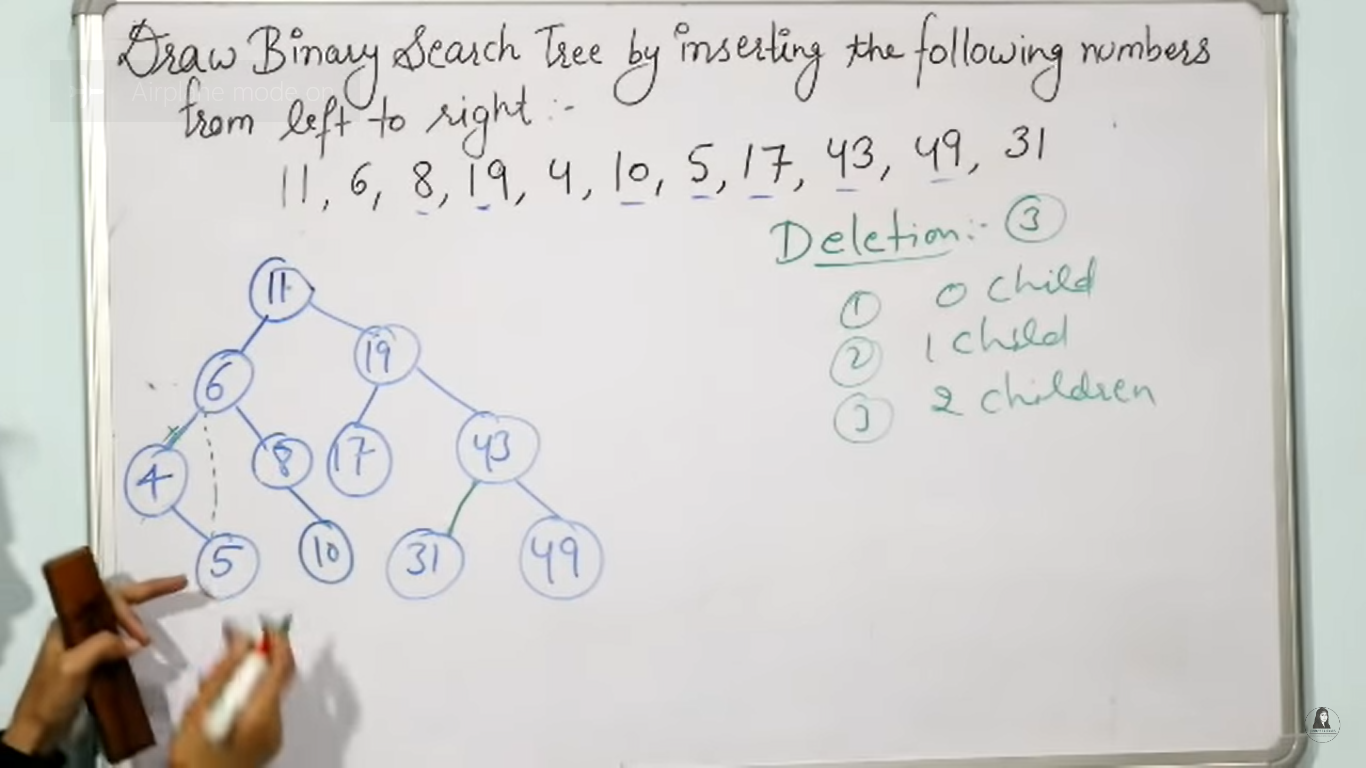 Draw Binary Search Tree by inserting the following numbers
Airplane mode on
from left to right :-
11, 6, 8, 19, 4, 10, 5, 17, 43, 49, 31
Deletion:- 3
1 0 child
2 1 child
3 2 children
11
6 19
4 8 17 43
5 10 31 49